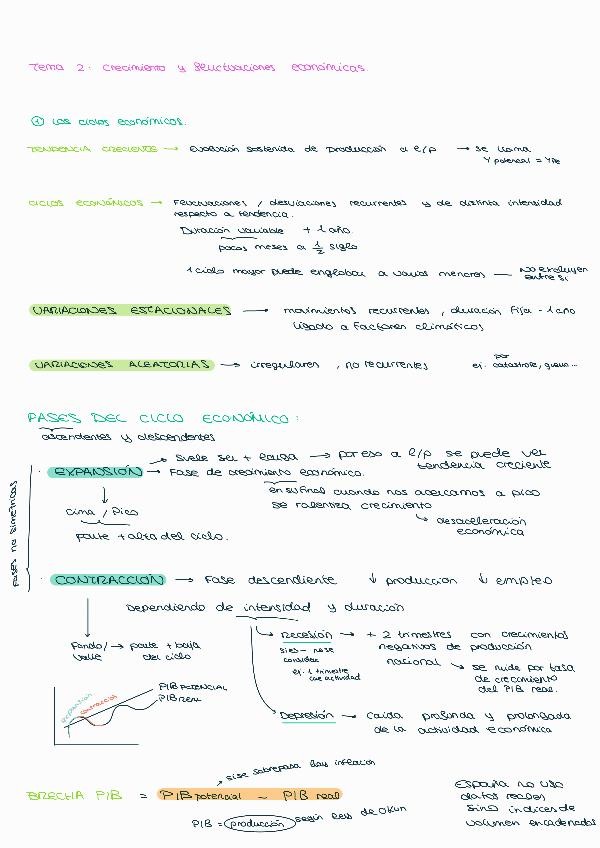 Tema 2: Crecimiento y fluctuaciones económicas.
① Los ciclos económicos.
TENDENCIA CRECIENTE → Evolución sostenida de producción a l/p → se llama
Y potencial = Ype
CICLOS ECONÓMICOS → Fluctuaciones / desviaciones recurrentes y de distinta intensidad
respecto a tendencia.
Duración variable + 1 año.
pocos meses a 1/2 siglo
1 ciclo mayor puede englobar a varios menores — NO excluyen
entre sí
VARIACIONES ESTACIONALES → movimientos recurrentes, duración fija - 1 año
ligado a factores climáticos
VARIACIONES ALEATORIAS → irregulares, no recurrentes ej: por catástrofe, guerra...
FASES DEL CICLO ECONÓMICO:
ascendentes y descendentes
Suele ser + larga → por eso a l/p se puede ver
tendencia creciente
· EXPANSIÓN → Fase de crecimiento económico.
en su final cuando nos acercamos a pico
se ralentiza crecimiento
↓
cima / Pico
desaceleración
económica
parte + alta del ciclo.
FASES no simétricas
· CONTRACCIÓN → Fase descendiente ↓ producción ↓ empleo
Dependiendo de intensidad y duración
Recesión → + 2 trimestres con crecimientos
negativos de producción
nacional → se mide por tasa
de crecimiento
del PIB real.
si es - no se
considera
ej. 1 trimestre
cae actividad
Fondo/ → parte + baja
Valle del ciclo
Depresión → Caída profunda y prolongada
de la actividad económica
PIB POTENCIAL
PIB REAL
expansión
contracción
si se sobrepasa hay inflación
BRECHA PIB = PIB potencial - PIB real
PIB = producción según ley de Okun
España no usa
datos reales
sino índices de
volumen encadenados